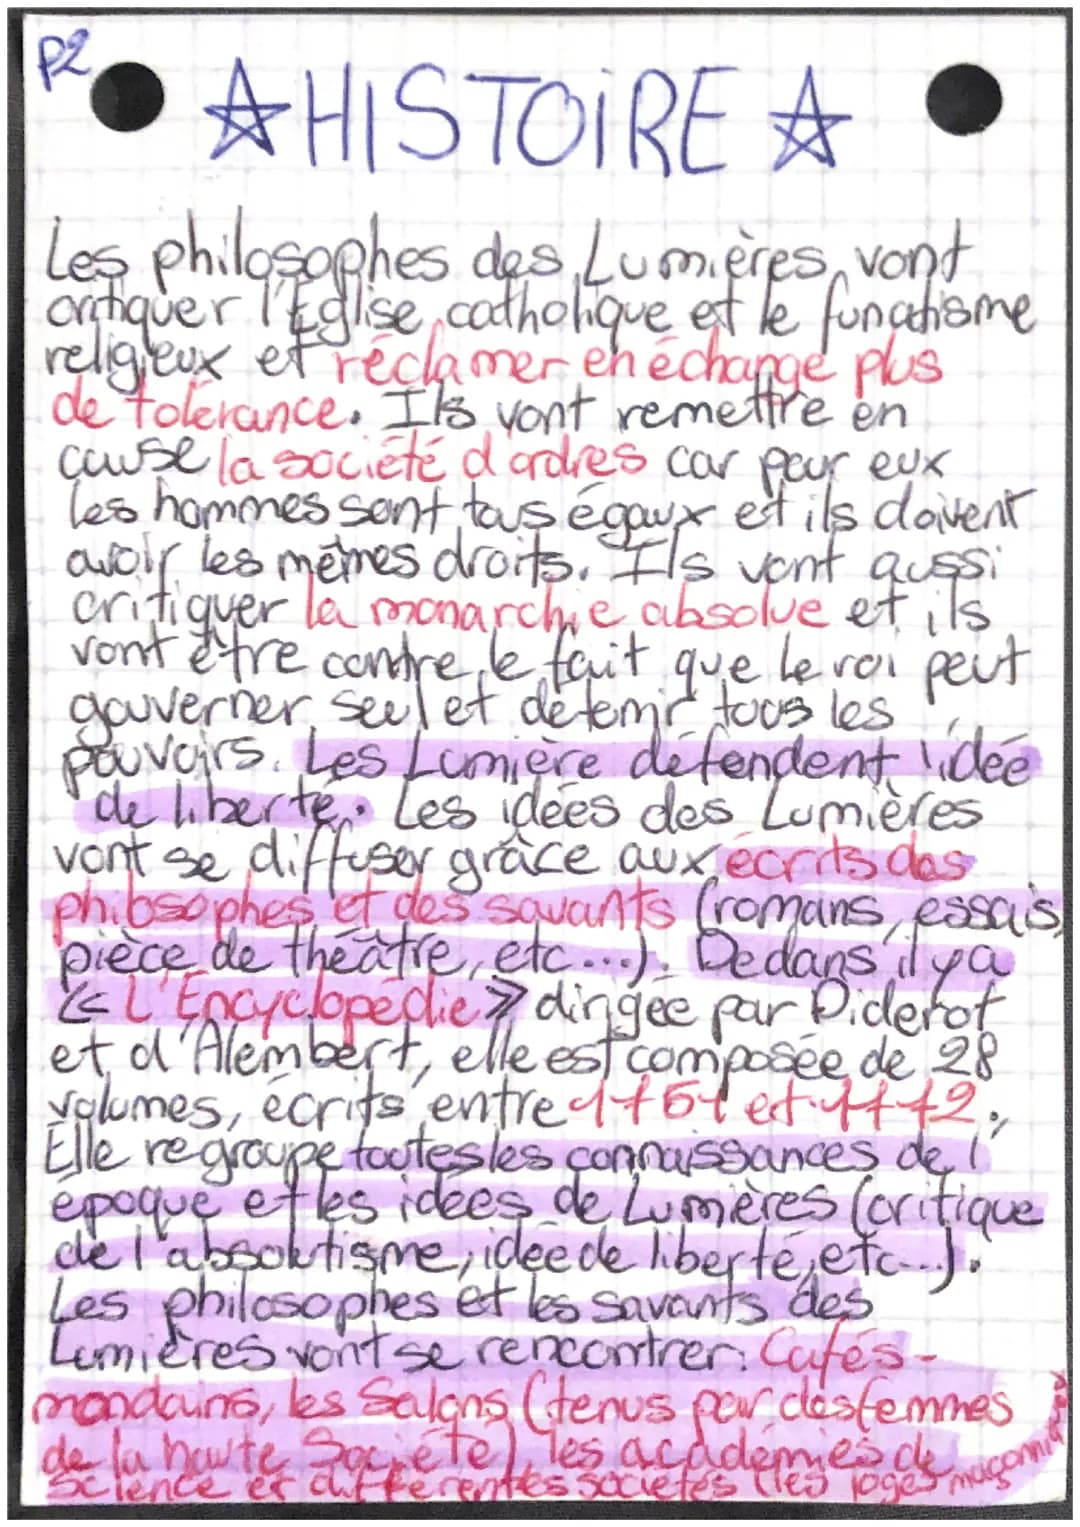 P2
☆ HISTOIRE ☆
Les philosophes des Lumières vont
critiquer l'Église catholique et le funatisme
religieux et réclamer en échange plus
de tolérance. Ils vont remettre en
cause la société d'ordres car pour eux
les hommes sont tous égaux et ils doivent
avoir les mêmes droits. Ils vont aussi
critiquer la monarchie absolue et ils
vont être contre le fait que le roi peut
gouverner seul et détenir tous les
pouvoirs. Les Lumière défendent l'idée
de liberté. Les idées des Lumières
vont se diffuser grâce aux écrits des
philosophes et des savants (romans, essais,
pièce de théâtre, etc...). Dedans il y a
« L'Encyclopédie » dirigée par Diderot
et d'Alembert, elle est composée de 28
volumes, écrits entre 1751 et 1772.
Elle regroupe toutes les connaissances de l'
époque et les idées de Lumières (critique
de l'absolutisme, idée de liberté, etc...).
Les philosophes et les savants des
Lumières vont se rencontrer: Cafés-
mondains, les Salons (tenus par des femmes
de la haute Société), les académies de
Science et différentes sociétés (les loges maçonniques